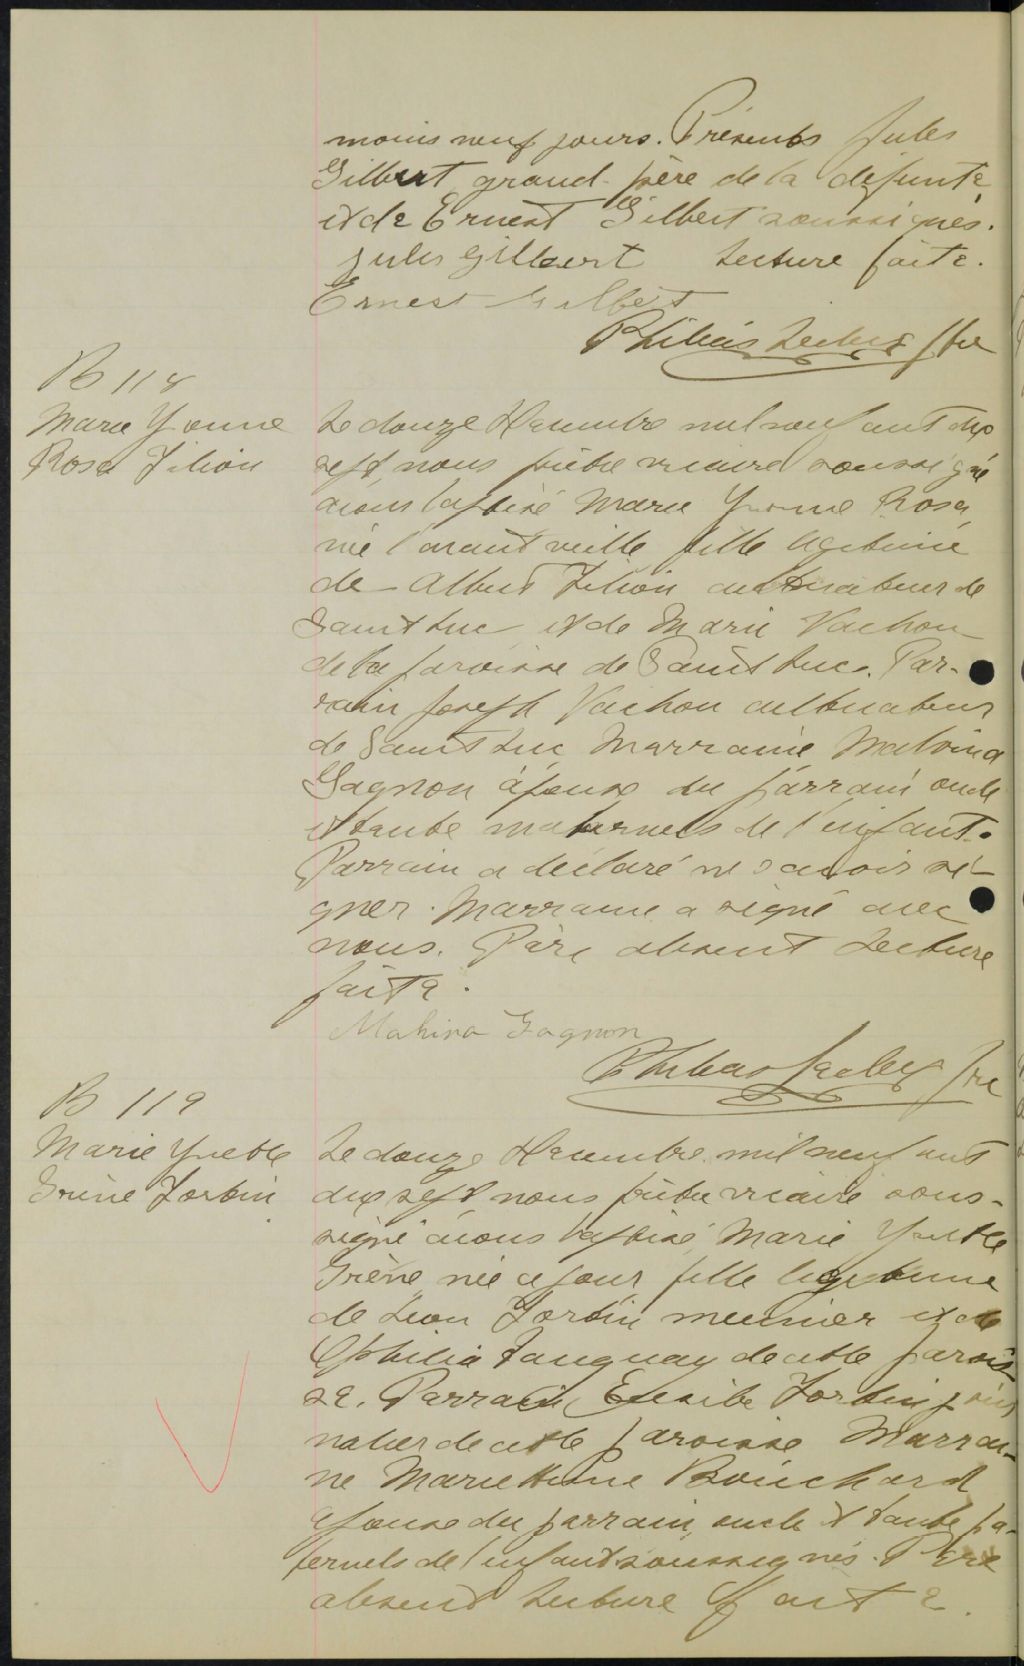 mois neuf jours. Présents Jules
Gilbert grand-père de la défunte
et de Ernest Gilbert soussignés.
Jules Gilbert Lecture faite.
Ernest Gilbert
Ptre
B 118
Marie Yvonne
Rose Filion
Le douze Décembre mil neuf cent dix
sept nous prêtre vicaire soussigné
avons baptisé Marie Yvonne Rose,
née l'avant veille fille légitime
de Albert Filion cultivateur de
Saint Luc et de Marie Vachon
de la paroisse de Saint Luc. Par-
rain Joseph Vachon cultivateur
de Saint Luc Marraine Malvina
Gagnon épouse du parrain oncle
et tante maternels de l'enfant.
Parrain a déclaré ne savoir si-
gner. Marraine a signé avec
nous. Père absent Lecture
faite.
Malvina Gagnon
Ptre
B 119
Marie Yvette
Irène Fortin
Le douze Décembre mil neuf cent
dix sept nous prêtre vicaire sous-
signé avons baptisé Marie Yvette
Irène née ce jour fille légitime
de Léon Fortin meunier et de
Ophilia Tanguay de cette parois-
se. Parrain Eusèbe Fortin jour
nalier de cette paroisse Marrai-
ne Marie Bouchard
épouse du parrain, oncle et tante pa-
ternels de l'enfant soussignés. Père
absent Lecture faite.